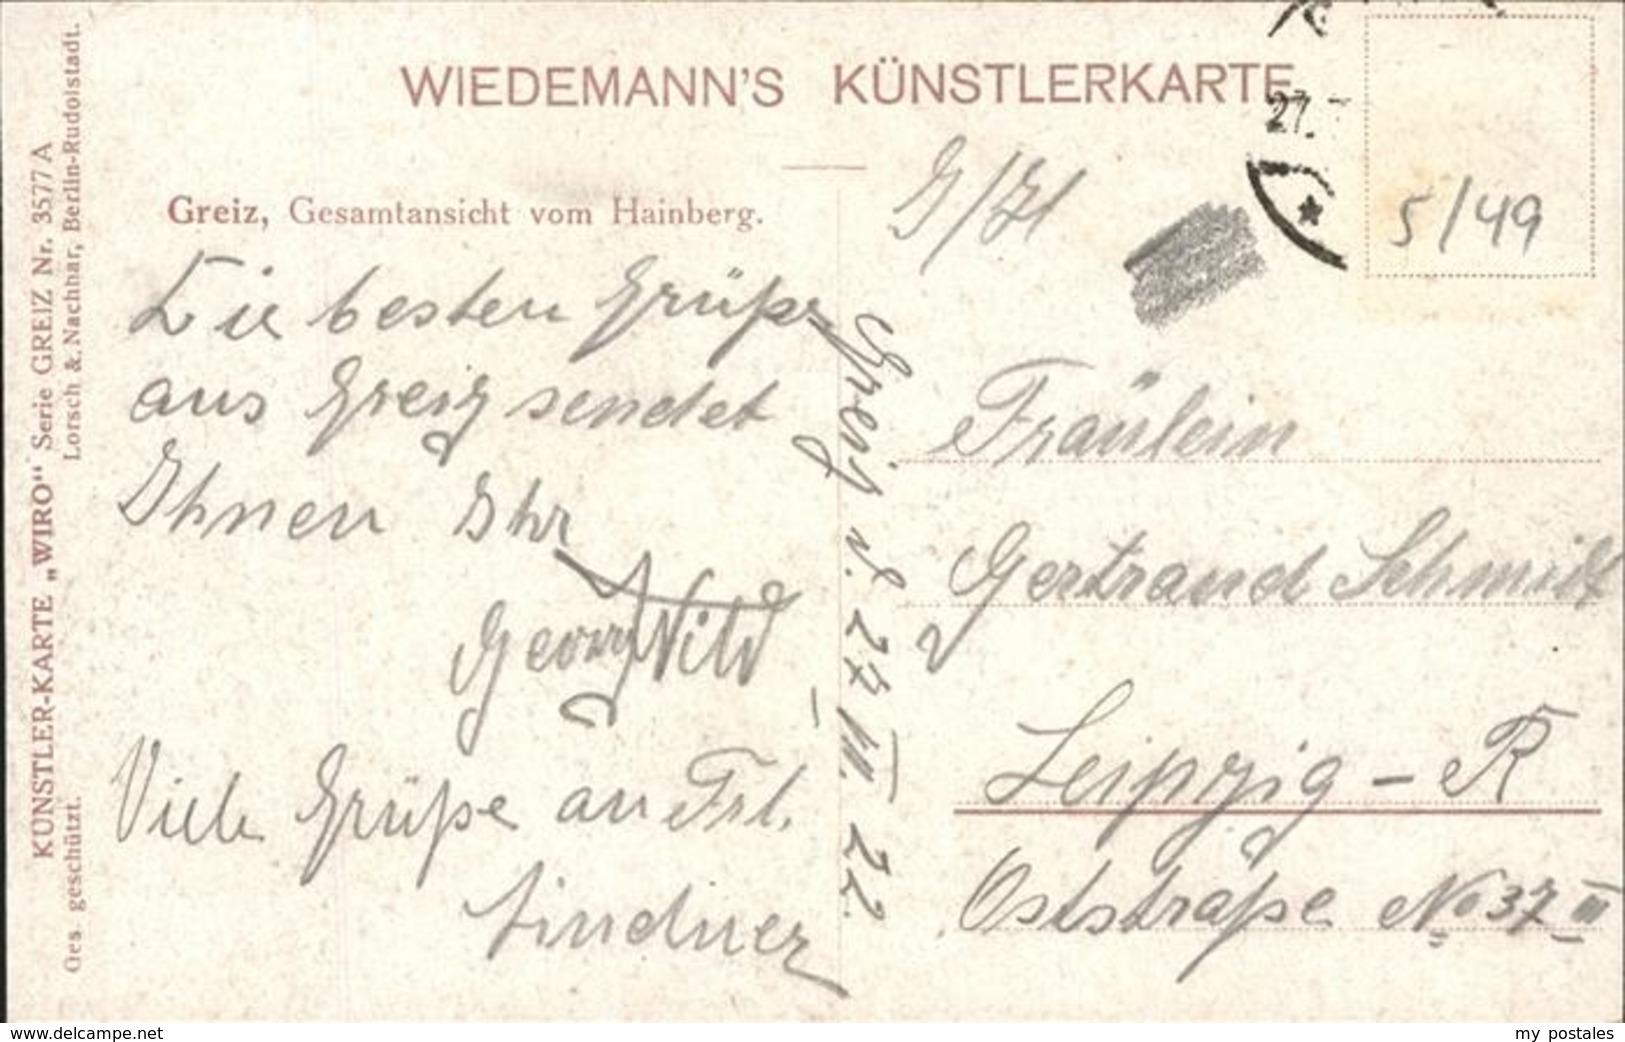 WIEDEMANN'S KÜNSTLERKARTE
27.
5/49
Greiz, Gesamtansicht vom Hainberg.
Die besten Grüße
aus Greiz sendet
Ihnen Ihr
Georg Wild
Viele Grüße an Frl.
Lindner
Greiz d. 27. VI. 22.
Fräulein
Gertraud Schmidt
Leipzig - R
Oststraße No 37 III
KÜNSTLER-KARTE „WIRO“ Serie GREIZ Nr. 3577 A
Ges. geschützt. Lorsch & Nachbar, Berlin-Rudolstadt.
www.delcampe.net
my postales